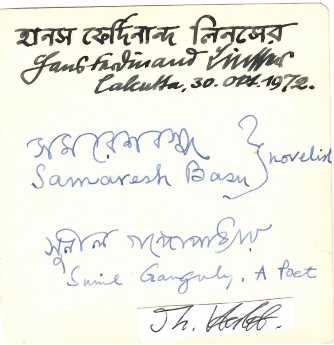 হানস ফের্দিনান্দ লিনসের
Hans Ferdinand Linsser
Calcutta, 30. Okt. 1972.
সমরেশ বসু
Samaresh Basu } novelist
সুনীল গঙ্গোপাধ্যায়
Sunil Ganguly, A Poet
Th.